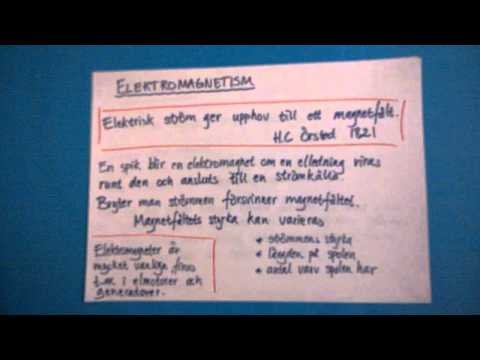 ELEKTROMAGNETISM
Elektrisk ström ger upphov till ett magnetfält.
H.C Örsted 1821
En spik blir en elektromagnet om en elledning viras
runt den och ansluts till en strömkälla.
Bryter man strömmen försvinner magnetfältet.
Magnetfältets styrka kan varieras
* strömmens styrka
* längden på spolen
* antal varv spolen har
Elektromagneter är
mycket vanliga, finns
t.ex. i elmotorer och
generatorer.